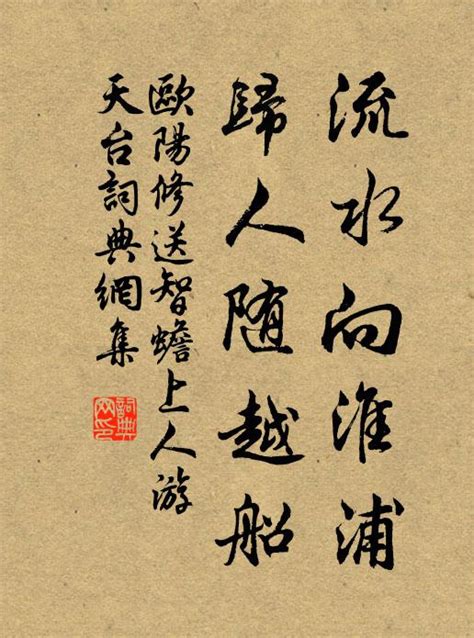 流水向淮浦
歸人随越船
歐陽修送智蟾上人游
天台詞典網集
詞典网印